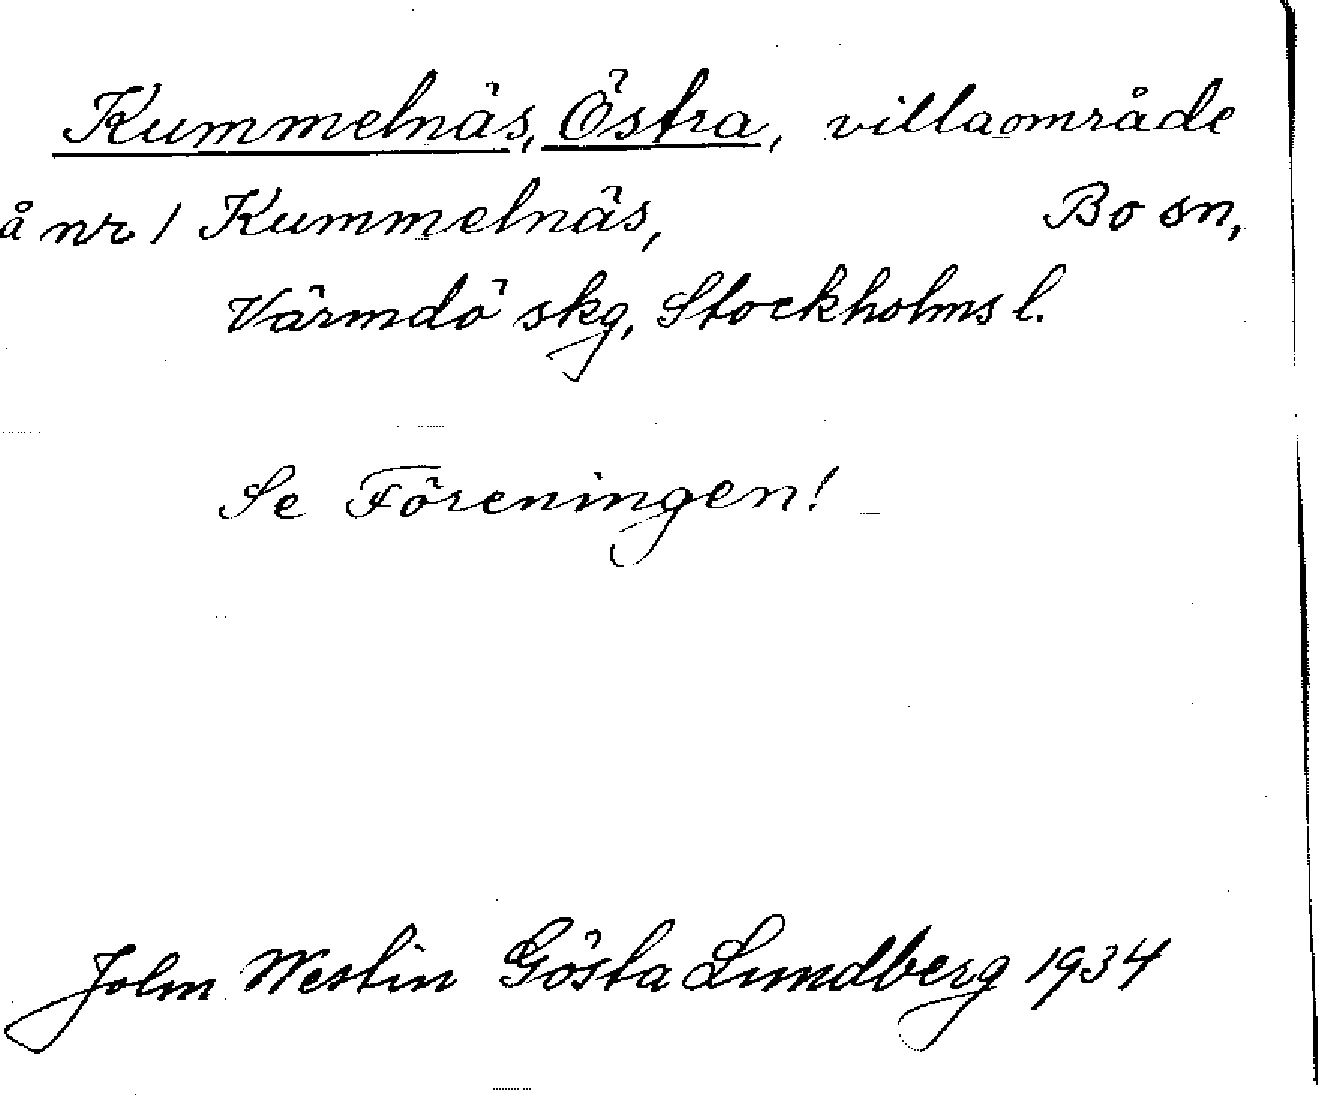 Kummelnäs, Östra, villaområde
å nr 1 Kummelnäs, Bo sn,
Värmdö skg, Stockholms l.
Se Föreningen!
John Westin Gösta Lundberg 1934